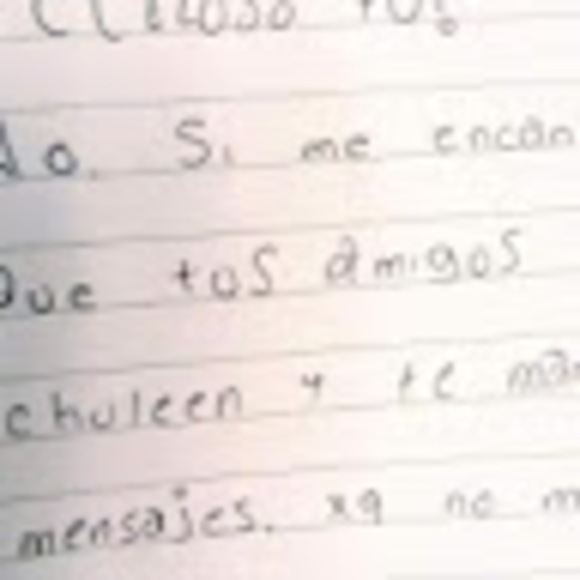 yo?
Si me encan
Que tus amigos
chuleen y te man
mensajes. xq no m